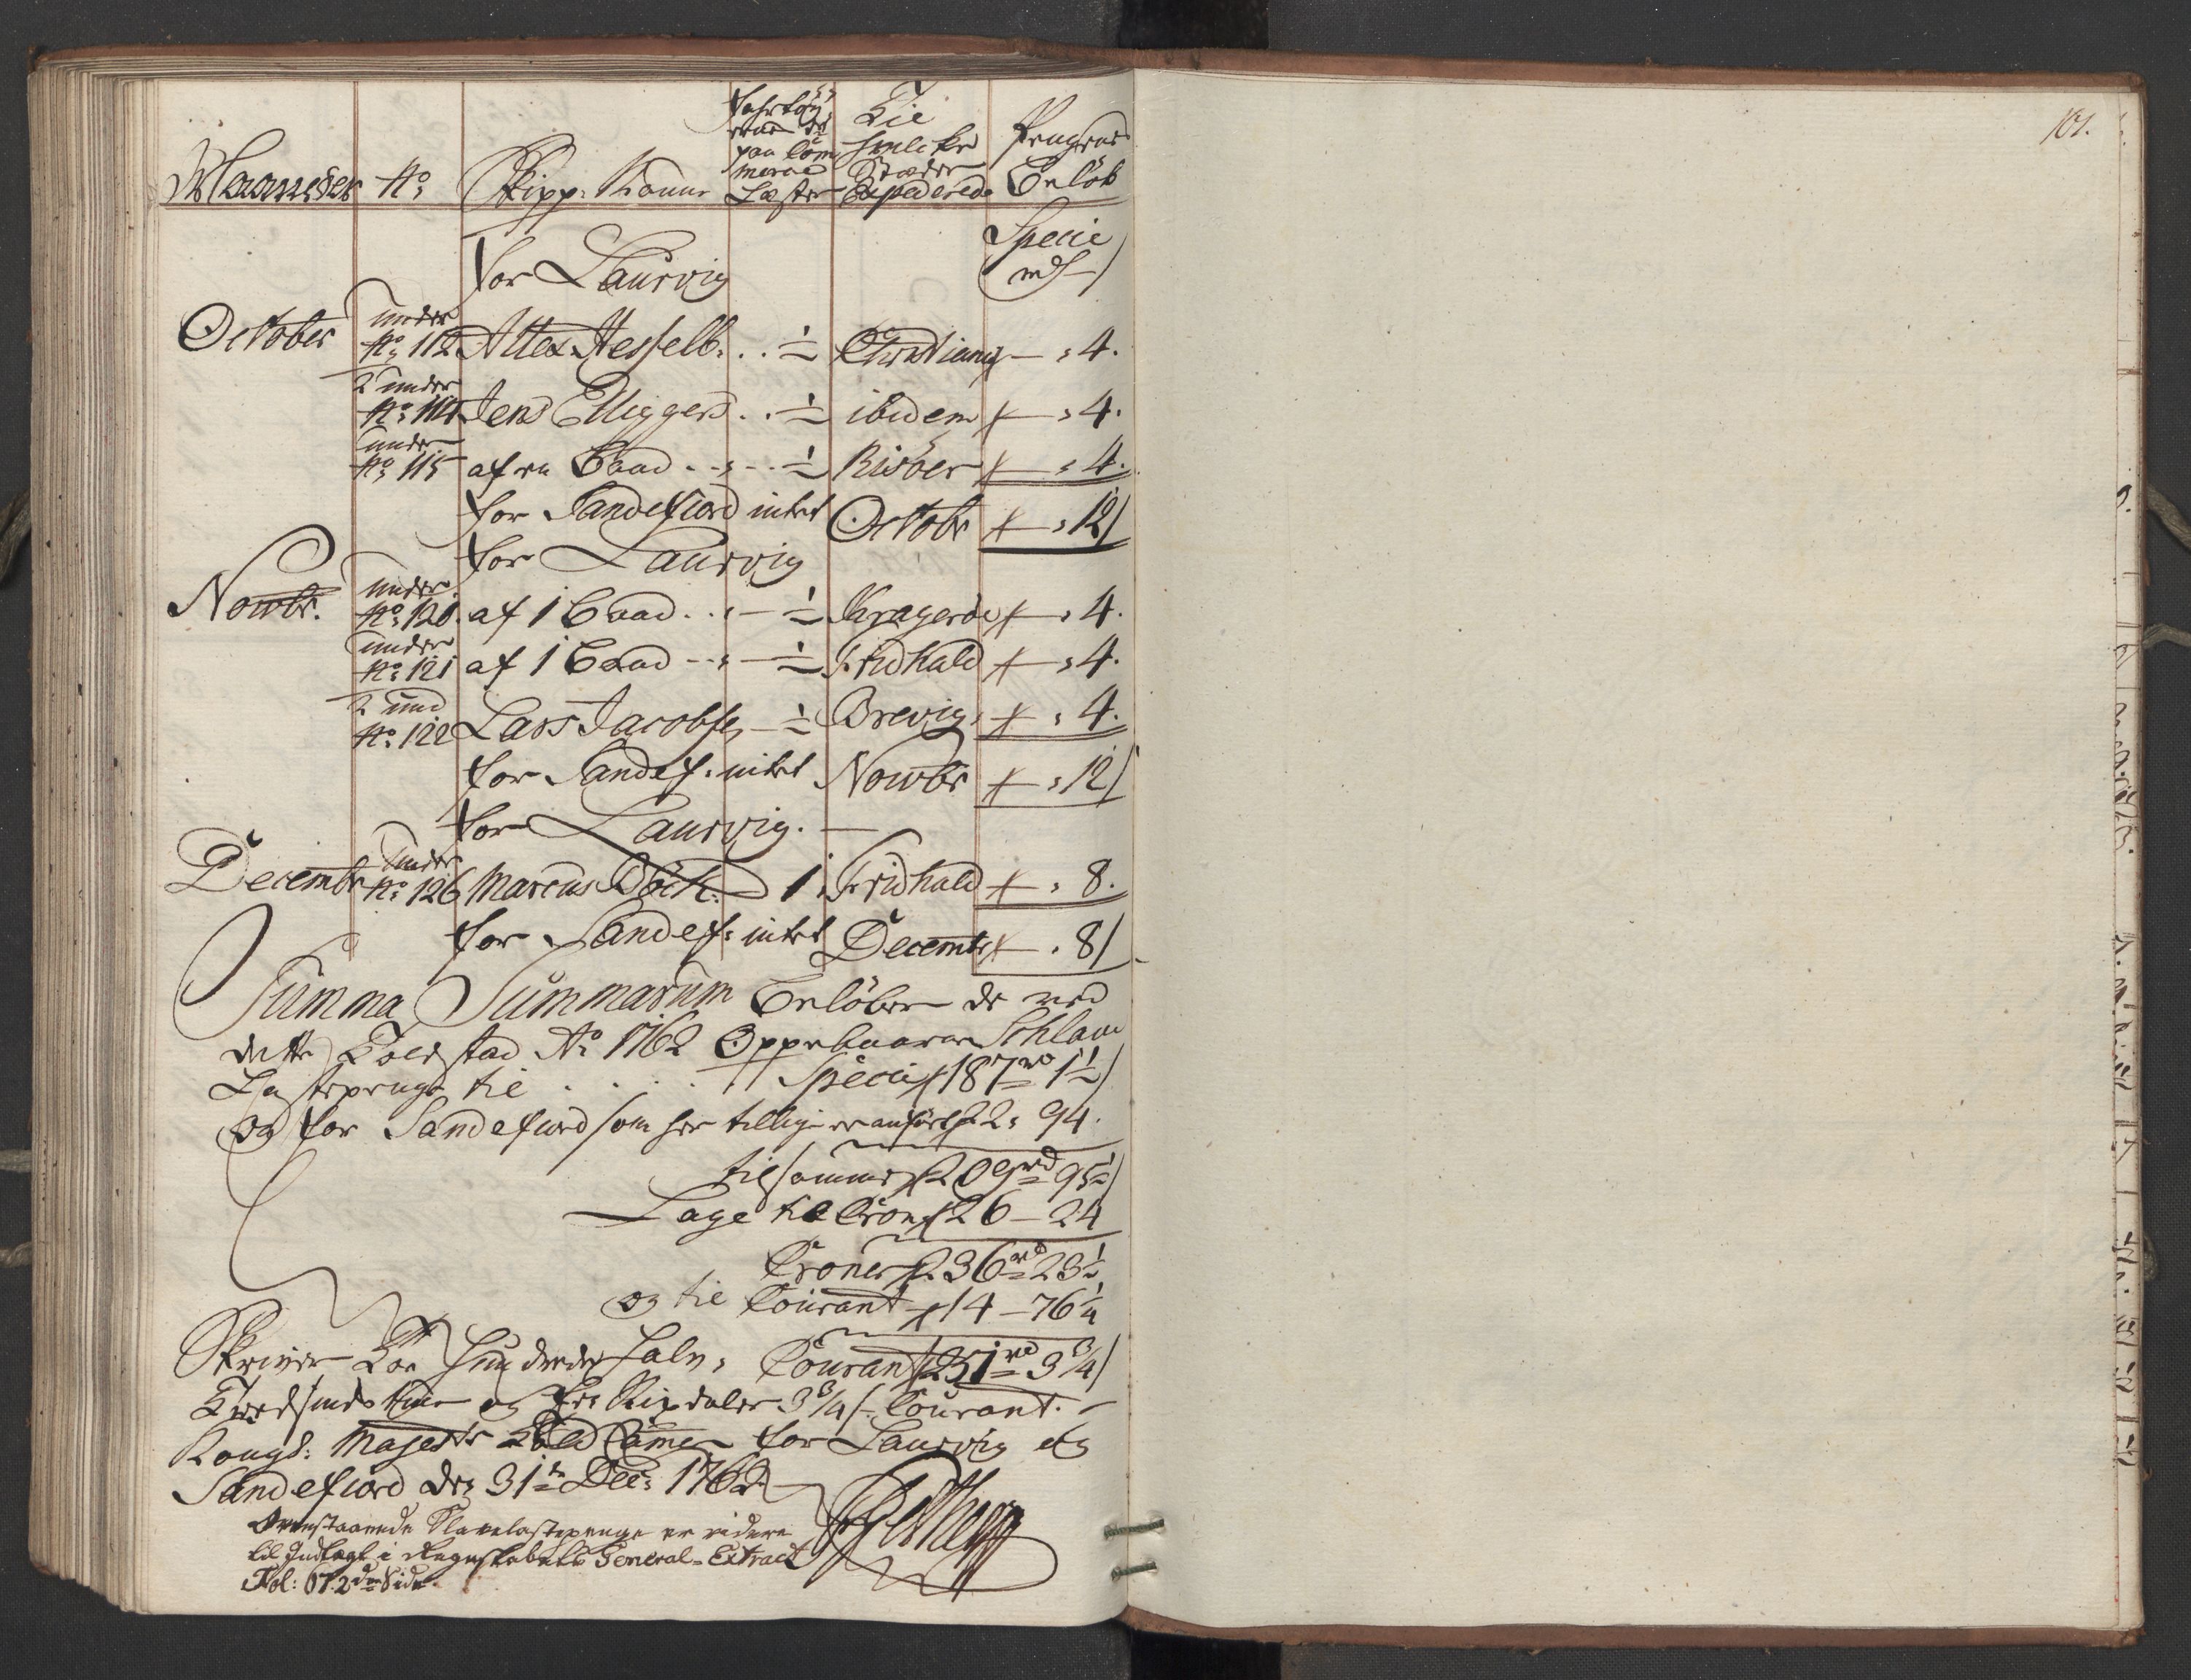 101.
Maaneder No: Skipp: Naune Fahrtøy erne Dr. paa Com merce Læster Til Hvilcke Stæder Expederede Pengenes Beløb
Specie
for Laurvig
October under No: 112 Hesselb: .. ½ Christiania — : 4.
2 under No: 114 Jens Eliggers .. ½ ibidem — : 4.
under No: 115 af en Baad ..:.. ½ Risöer — : 4.
for Sandefiord intet Octobr — : 12
for Laurvig
Novbr. under No: 120. af 1 Baad .. ½ Kragerøe — : 4.
under No: 121 af 1 Baad ..:.. ½ Fridhald — : 4.
2 und No: 122 Lars Jacobsen ½ Brevig — : 4.
for Sandef: intet Novbr — : 12
for Laurvig.
Decembr under No: 126 Marcus Böck: 1. Fridhald — : 8.
for Sandef: intet Decembr — . 8
Summa Summarum Beløber de ved
dette Toldstad Ao 1762 Oppebaarne Schlave
Lastepenge til . . . . Specie 187 rd 1½
og for Sandefiord som her tillige er anført 22: 94.
tilsammen 209 rd 95½
Lage til Cron 26 — 24
Croner 236 rd 23½
og til Courant 14 — 76¼
Skriver Toe Hundrede halv: Courant 251 rd 3¾
Tredsinds tiuve og Rixdaler 3¾ Courant.
Kongl: Majestts Told Camer for Laurvig og
Sandefiord den 31te Dec: 1762
Ovenstaaende Slavelastepenge er videre
til Indtægt i Regnskabets General-Extract
Fol: 67. 2den Side.